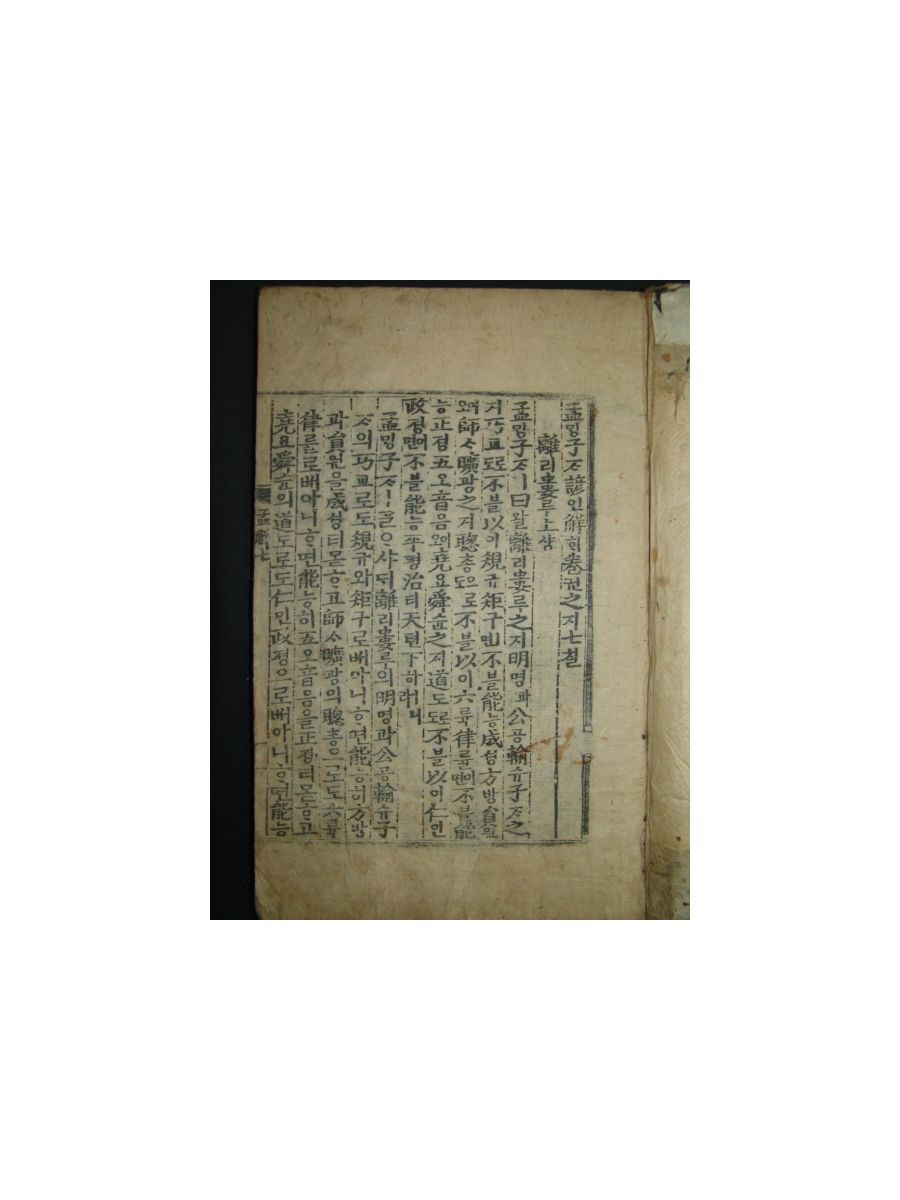 孟밍子ᄌᆞ諺언解ᄒᆡ卷권之지七칠
離리婁루上샹
孟밍子ᄌᆞㅣ曰왈離리婁루之지明명과公공輸슈子ᄌᆞ之
지巧교로도不블以이規규矩구ㅣ면不블能능成셩方방員원이오
師ᄉᆞ曠광之지聰총으로도不블以이六륙律률이면不블能
능正졍五오音음이오堯요舜슌之지道도로도不블以이仁인
政졍이면不블能능平평治티天텬下하ㅣ니라
孟밍子ᄌᆞㅣᄀᆞᆯᄋᆞ샤ᄃᆡ離리婁루의明명과公공輸슈子
ᄌᆞ의巧교로도規규와矩구로ᄡᅥ아니ᄒᆞ면能능히方방
과員원을成셩티몯ᄒᆞ고師ᄉᆞ曠광의聰총으로도六륙
律률로ᄡᅥ아니ᄒᆞ면能능히五오音음을正졍티몯ᄒᆞ고
堯요舜슌의道도로도仁인政졍으로ᄡᅥ아니ᄒᆞ면能능
孟解七